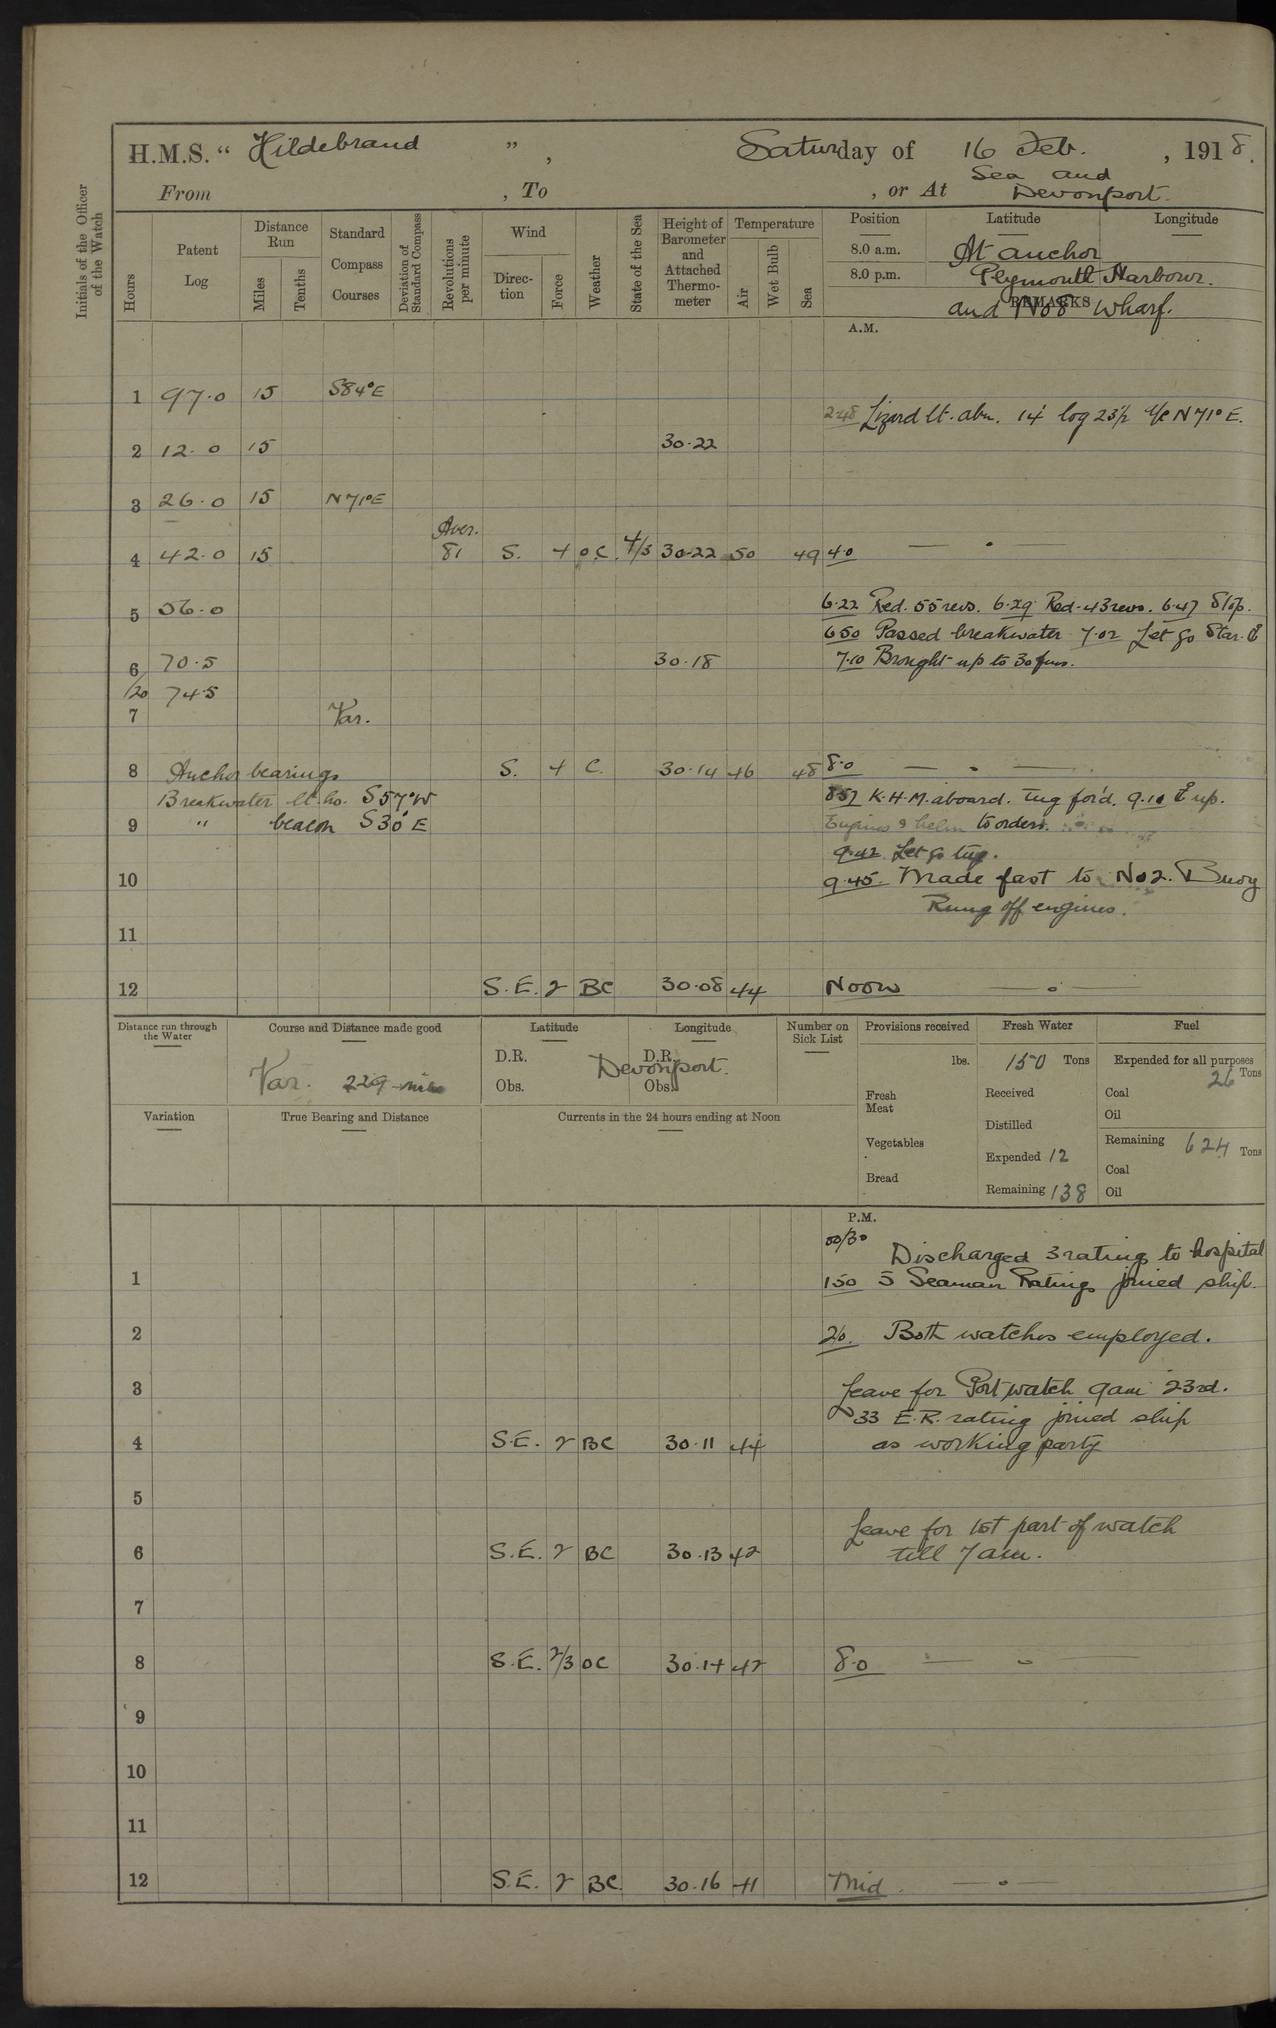 H.M.S. “ Hildebrand ” , Saturday of 16 Feb. , 1918.
From , To , or At Sea and Devonport.
Initials of the Officer of the Watch
Hours
Patent Log
Distance Run
Miles
Tenths
Standard Compass Courses
Deviation of Standard Compass
Revolutions per minute
Wind
Direc-tion
Force
Weather
State of the Sea
Height of Barometer and Attached Thermo-meter
Temperature
Air
Wet Bulb
Sea
Position Latitude Longitude
8.0 a.m. At anchor
8.0 p.m. Plymouth Harbour.
REMARKS and No 8 Wharf.
A.M.
1 97.0 15 S84°E
2.48 Lizard lt. abm. 14' log 23½ a/c N71°E.
2 12.0 15 30.22
3 26.0 15 N71°E
Aver.
4 42.0 15 81 S. 4 o.c. 4/3 30.22 50 49 4.0 — . —
5 56.0 6.22 Red. 55 revs. 6.29 Red. 43 revs. 6.47 Stop.
6.50 Passed breakwater 7.02 Let go Star.
6 70.5 30.18 7.10 Brought up to 30 fms.
/20 74.5
7 Var.
8 Anchor bearings S. 4 C. 30.14 46 48 8.0 — . —
Breakwater lt. ho. S57°W 8.57 K.H.M. aboard. Tug for'd. 9.10 up.
9 " beacon S30°E Engines & helm to orders.
9.42 Let go tug.
10 9.45 Made fast to No 2. Buoy
Rung off engines.
11
12 S.E. 2 BC 30.08 44 Noon — . —
Distance run through the Water
Course and Distance made good
Var. 229 miles
Latitude Longitude
D.R. D.R.
Devonport.
Obs. Obs.
Number on Sick List
Provisions received
lbs.
Fresh Meat
Vegetables
Bread
Fresh Water
150 Tons
Received
Distilled
Expended 12
Remaining 138
Fuel
Expended for all purposes
26 Tons
Coal
Oil
Remaining 624 Tons
Coal
Oil
Variation
True Bearing and Distance
Currents in the 24 hours ending at Noon
P.M.
00/30 Discharged 3 ratings to hospital
1 1.50 5 Seaman Ratings joined ship.
2 2.0. Both watches employed.
3 Leave for Port watch 9am 23rd.
33 E.R. rating joined ship
4 S.E. 2 BC 30.11 44 as working party
5
Leave for 1st part of watch
6 S.E. 2 BC 30.13 42 till 7am.
7
8 S.E. 2/3 OC 30.14 42 8.0 — . —
9
10
11
12 S.E. 2 BC 30.16 41 Mid. — . —